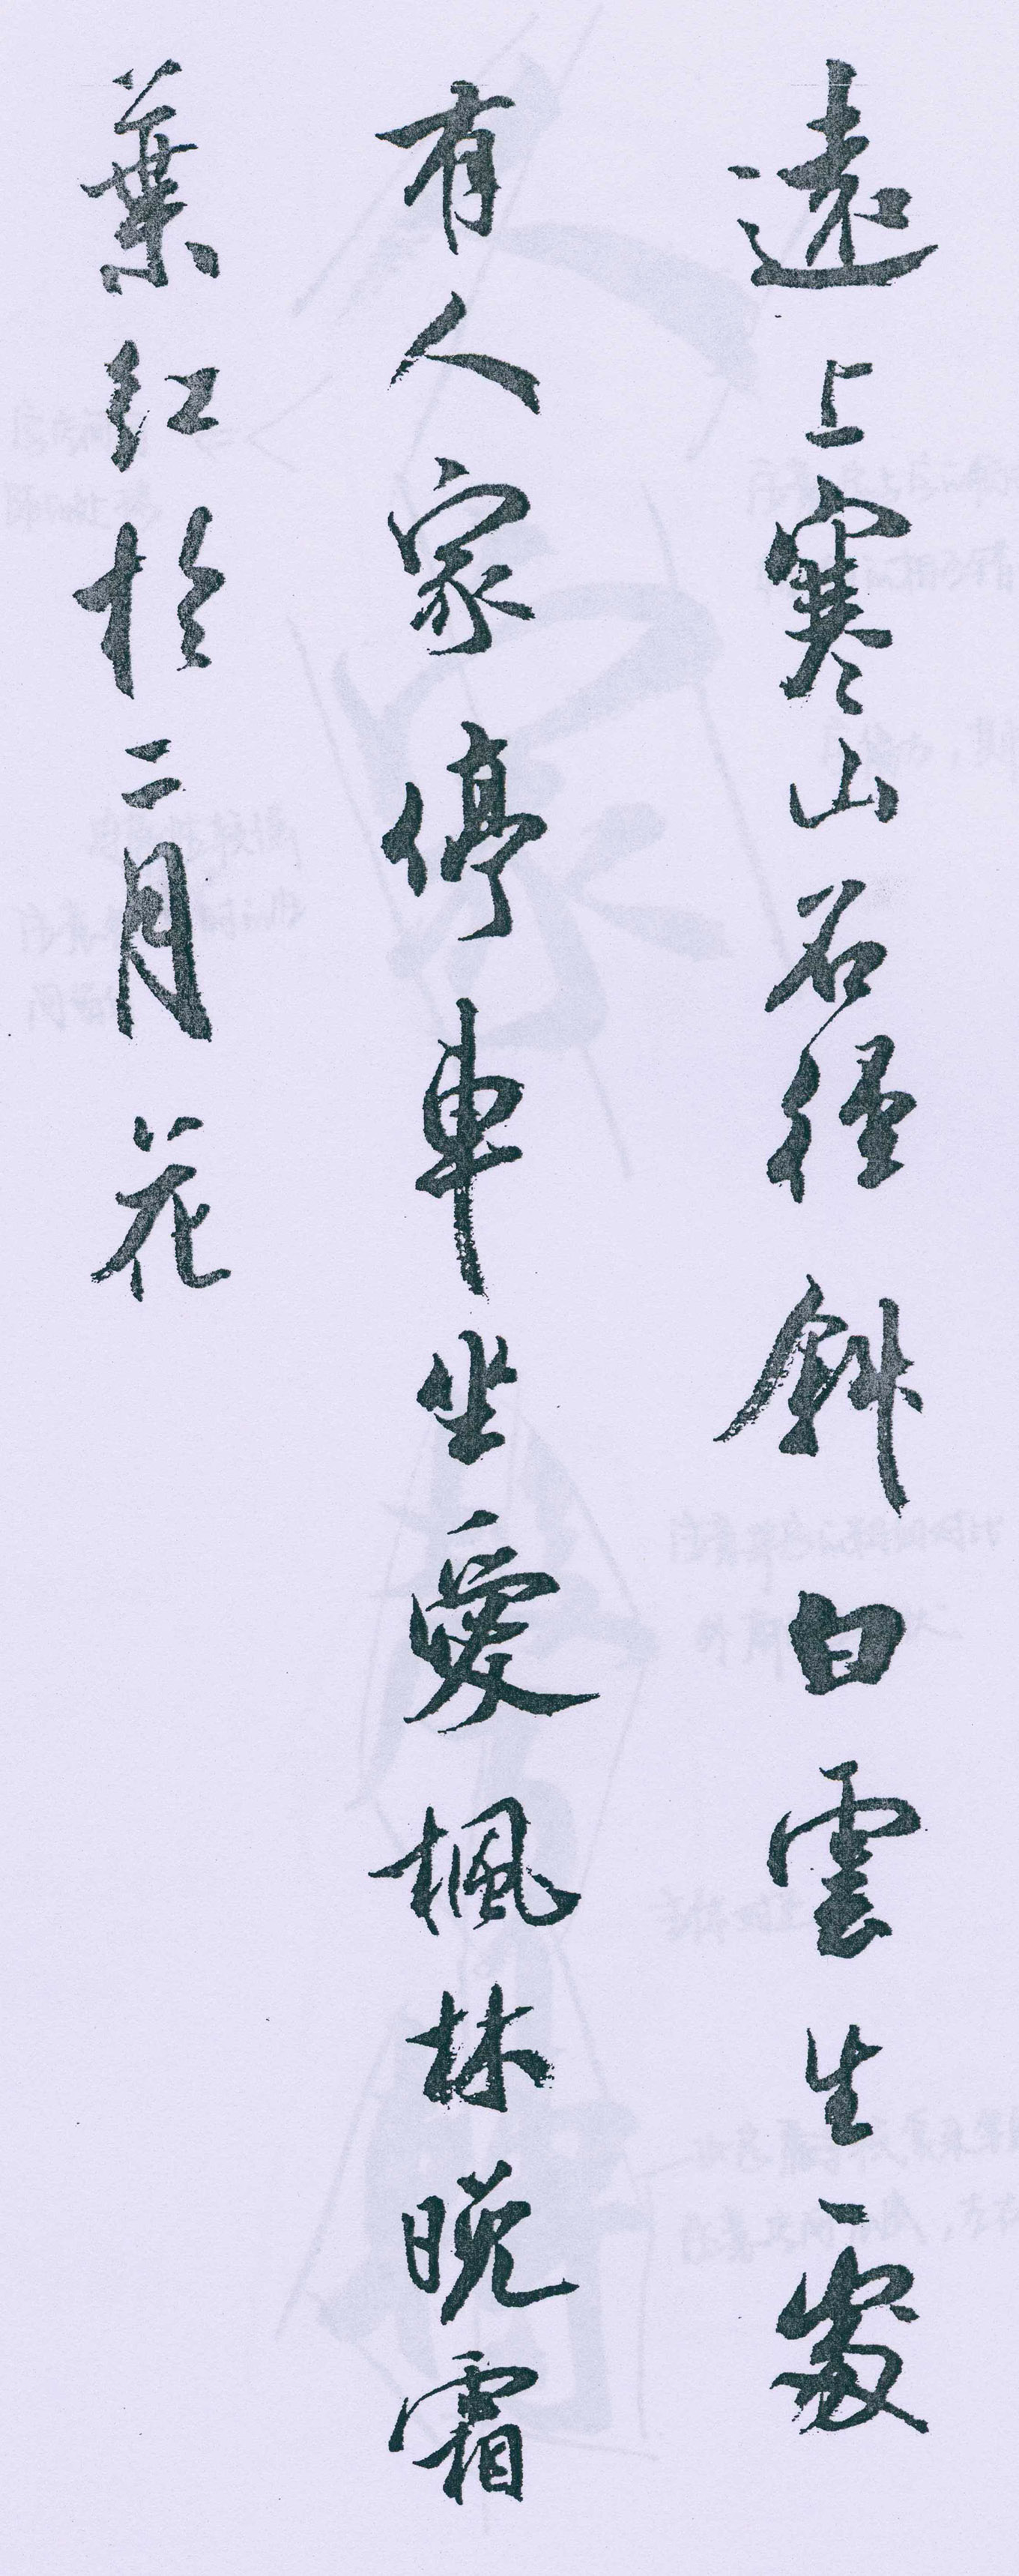 遠上寒山石徑斜白雲生處
有人家停車坐愛楓林晚霜
葉紅於二月花